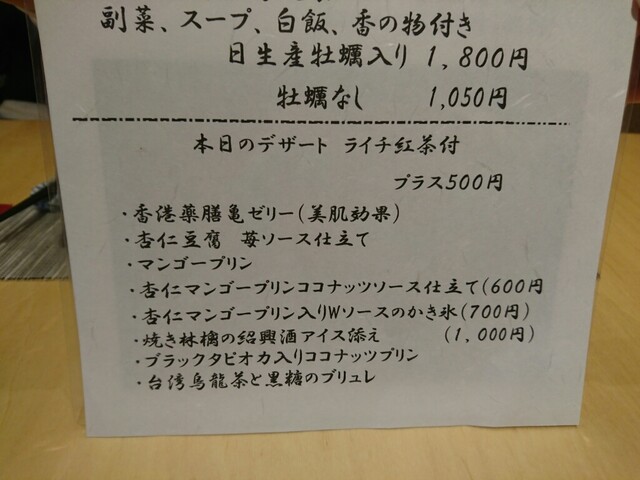 副菜、スープ、白飯、香の物付き
日生産牡蠣入り 1,800円
牡蠣なし 1,050円
本日のデザート ライチ紅茶付
プラス500円
・香港薬膳亀ゼリー(美肌効果)
・杏仁豆腐 苺ソース仕立て
・マンゴープリン
・杏仁マンゴープリンココナッツソース仕立て(600円
・杏仁マンゴープリン入りWソースのかき氷(700円)
・焼き林檎の紹興酒アイス添え (1,000円)
・ブラックタピオカ入りココナッツプリン
・台湾烏龍茶と黒糖のブリュレ